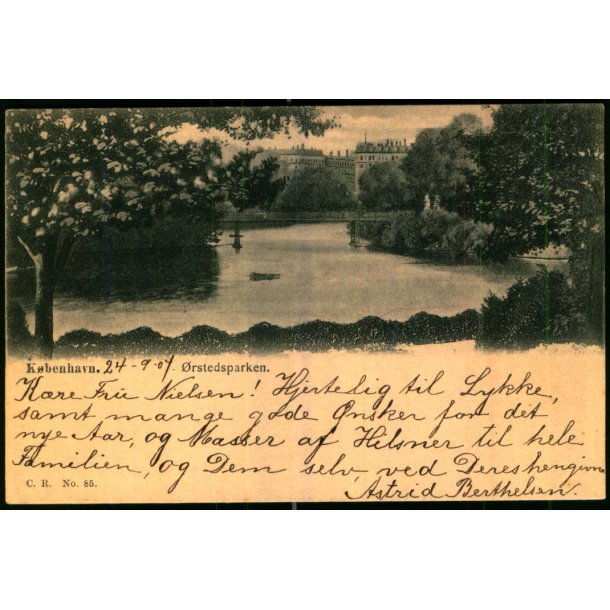 København. 24-9-07. Ørstedsparken.
Kære Fru Nielsen! Hjertelig til Lykke,
samt mange gode Ønsker for det
nye Aar, og Masser af Hilsner til hele
Familien, og Dem selv, ved Dereshengivne
Astrid Berthelsen.
C. R. No. 85.